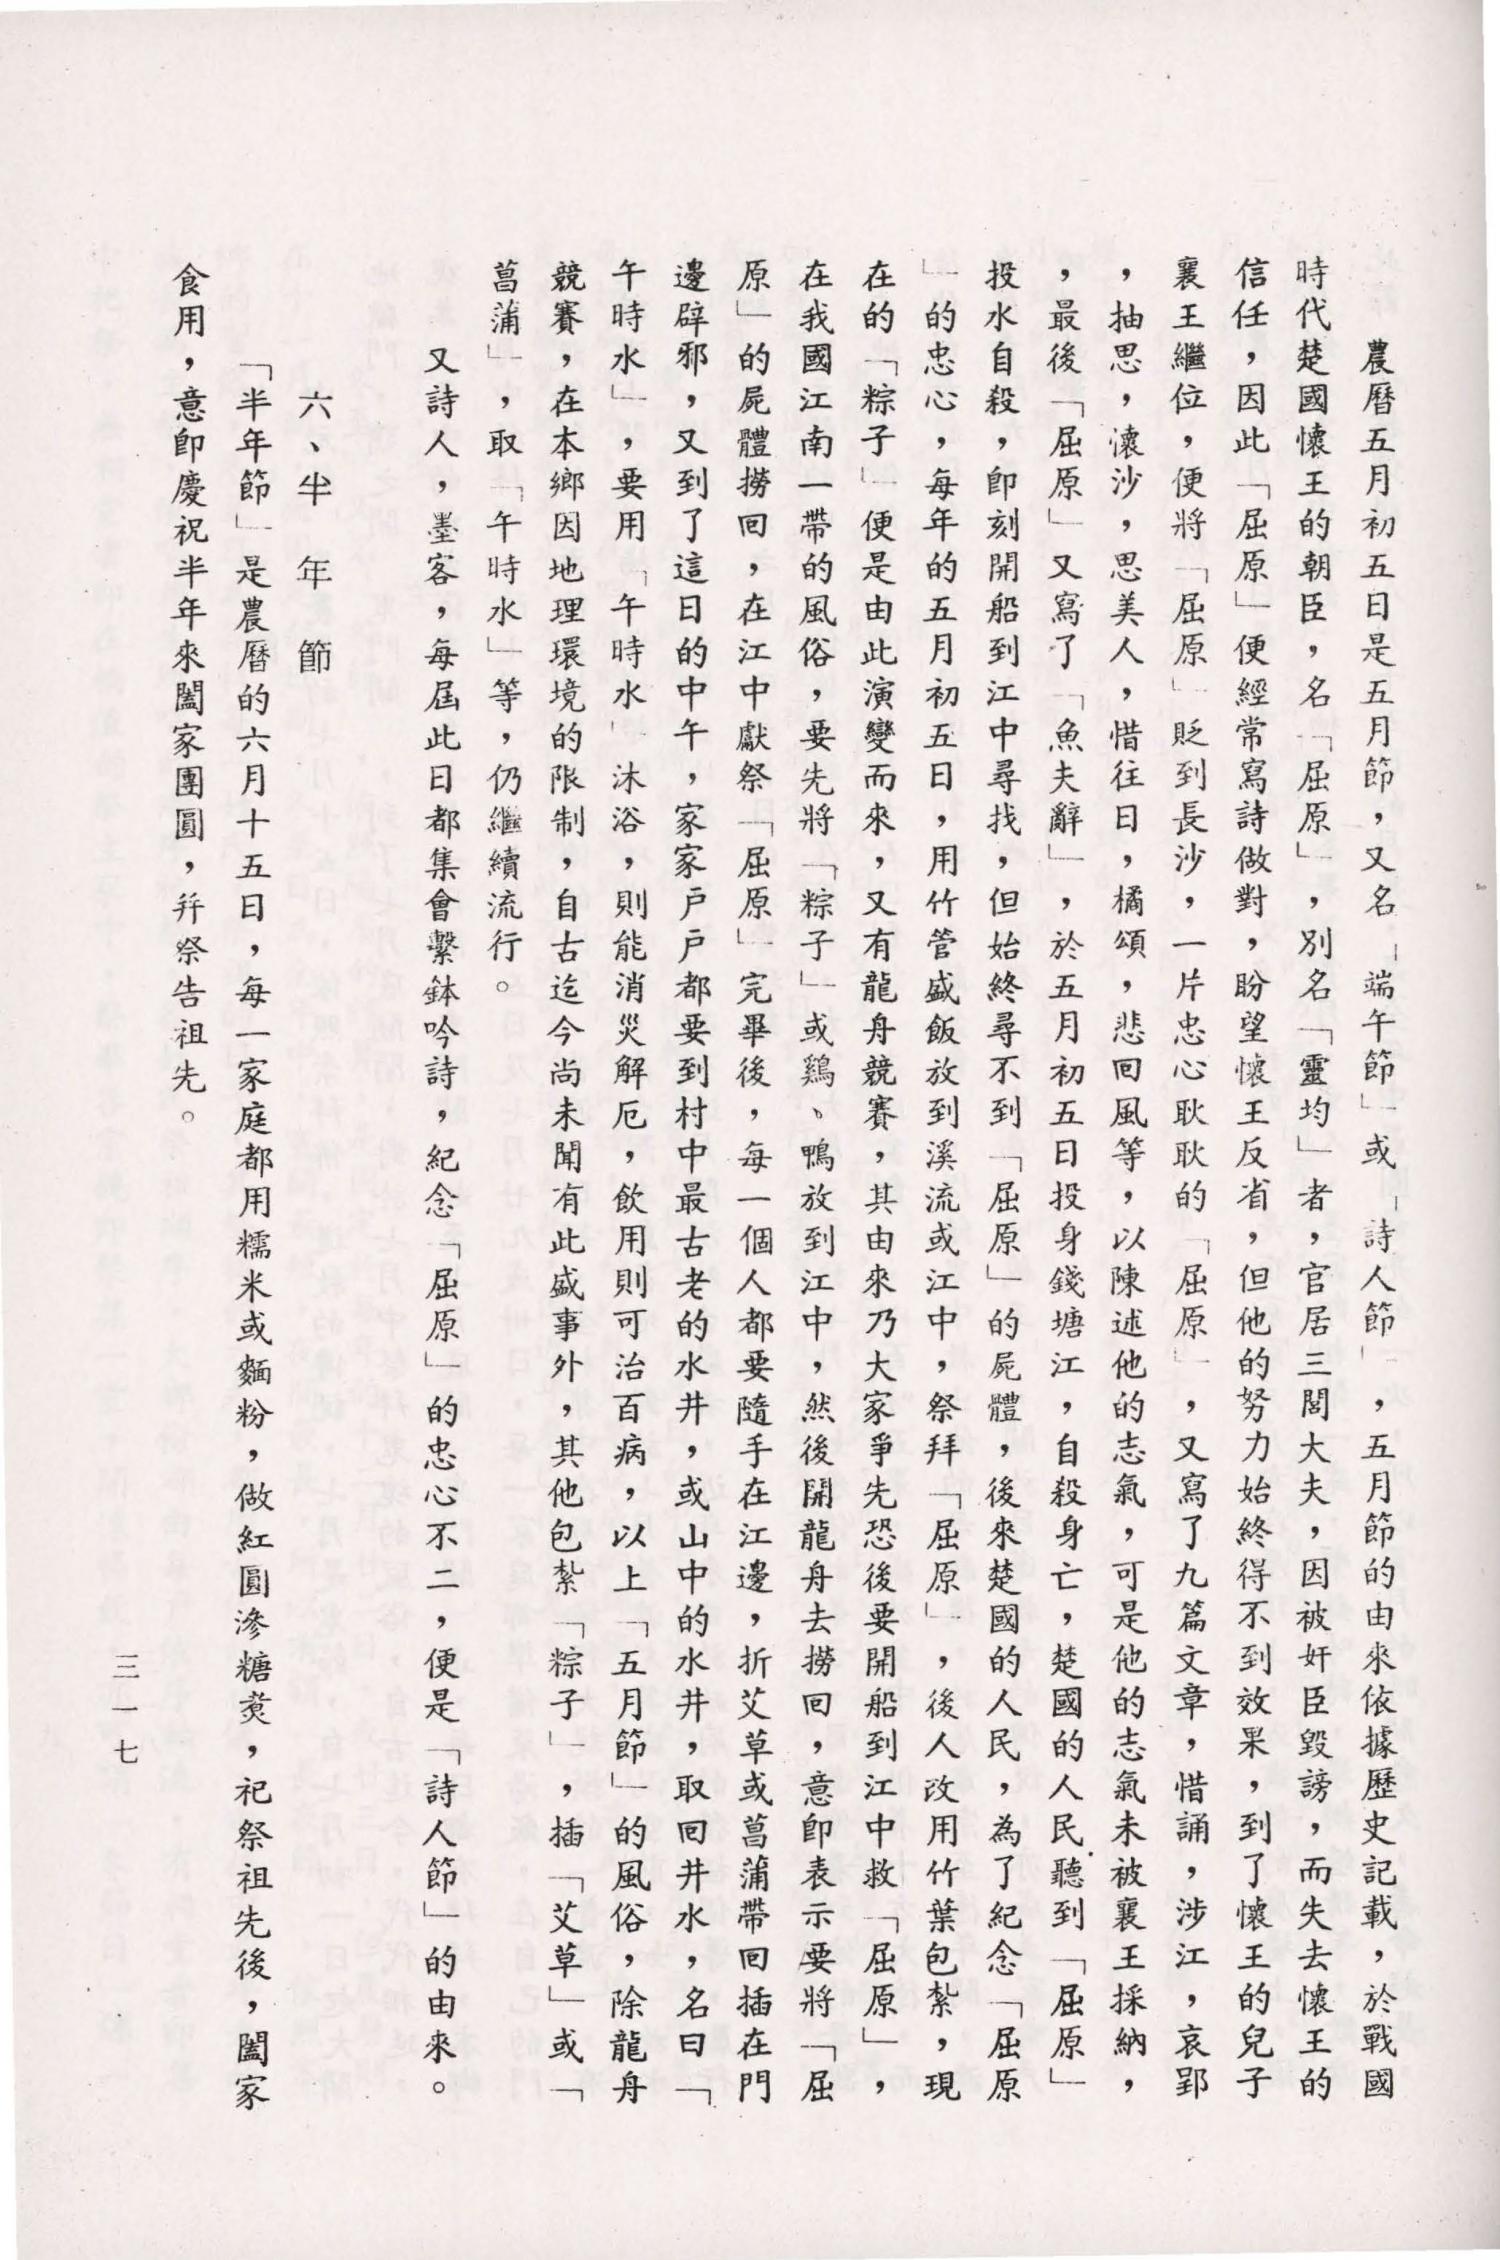 農曆五月初五日是五月節，又名「端午節」或「詩人節」，五月節的由來依據歷史記載，於戰國
時代楚國懷王的朝臣，名「屈原」，別名「靈均」者，官居三閭大夫，因被奸臣毀謗，而失去懷王的
信任，因此「屈原」便經常寫詩做對，盼望懷王反省，但他的努力始終得不到效果，到了懷王的兒子
襄王繼位，便將「屈原」貶到長沙，一片忠心耿耿的「屈原」，又寫了九篇文章，惜誦，涉江，哀郢
，抽思，懷沙，思美人，惜往日，橘頌，悲回風等，以陳述他的志氣，可是他的志氣未被襄王採納，
，最後「屈原」又寫了「魚夫辭」，於五月初五日投身錢塘江，自殺身亡，楚國的人民聽到「屈原」
投水自殺，即刻開船到江中尋找，但始終尋不到「屈原」的屍體，後來楚國的人民，為了紀念「屈原
」的忠心，每年的五月初五日，用竹管盛飯放到溪流或江中，祭拜「屈原」，後人改用竹葉包紮，現
在的「粽子」便是由此演變而來，又有龍舟競賽，其由來乃大家爭先恐後要開船到江中救「屈原」，
在我國江南一帶的風俗，要先將「粽子」或鷄、鴨放到江中，然後開龍舟去撈回，意即表示要將「屈
原」的屍體撈回，在江中獻祭「屈原」完畢後，每一個人都要隨手在江邊，折艾草或菖蒲帶回插在門
邊辟邪，又到了這日的中午，家家戶戶都要到村中最古老的水井，或山中的水井，取回井水，名曰「
午時水」，要用「午時水」沐浴，則能消災解厄，飲用則可治百病，以上「五月節」的風俗，除龍舟
競賽，在本鄉因地理環境的限制，自古迄今尚未聞有此盛事外，其他包紮「粽子」，插「艾草」或「
菖蒲」，取「午時水」等，仍繼續流行。
又詩人，墨客，每屆此日都集會繫鉢吟詩，紀念「屈原」的忠心不二，便是「詩人節」的由來。
六、半年節
「半年節」是農曆的六月十五日，每一家庭都用糯米或麵粉，做紅圓滲糖煑，祀祭祖先後，闔家
食用，意即慶祝半年來闔家團圓，幷祭告祖先。
三一七